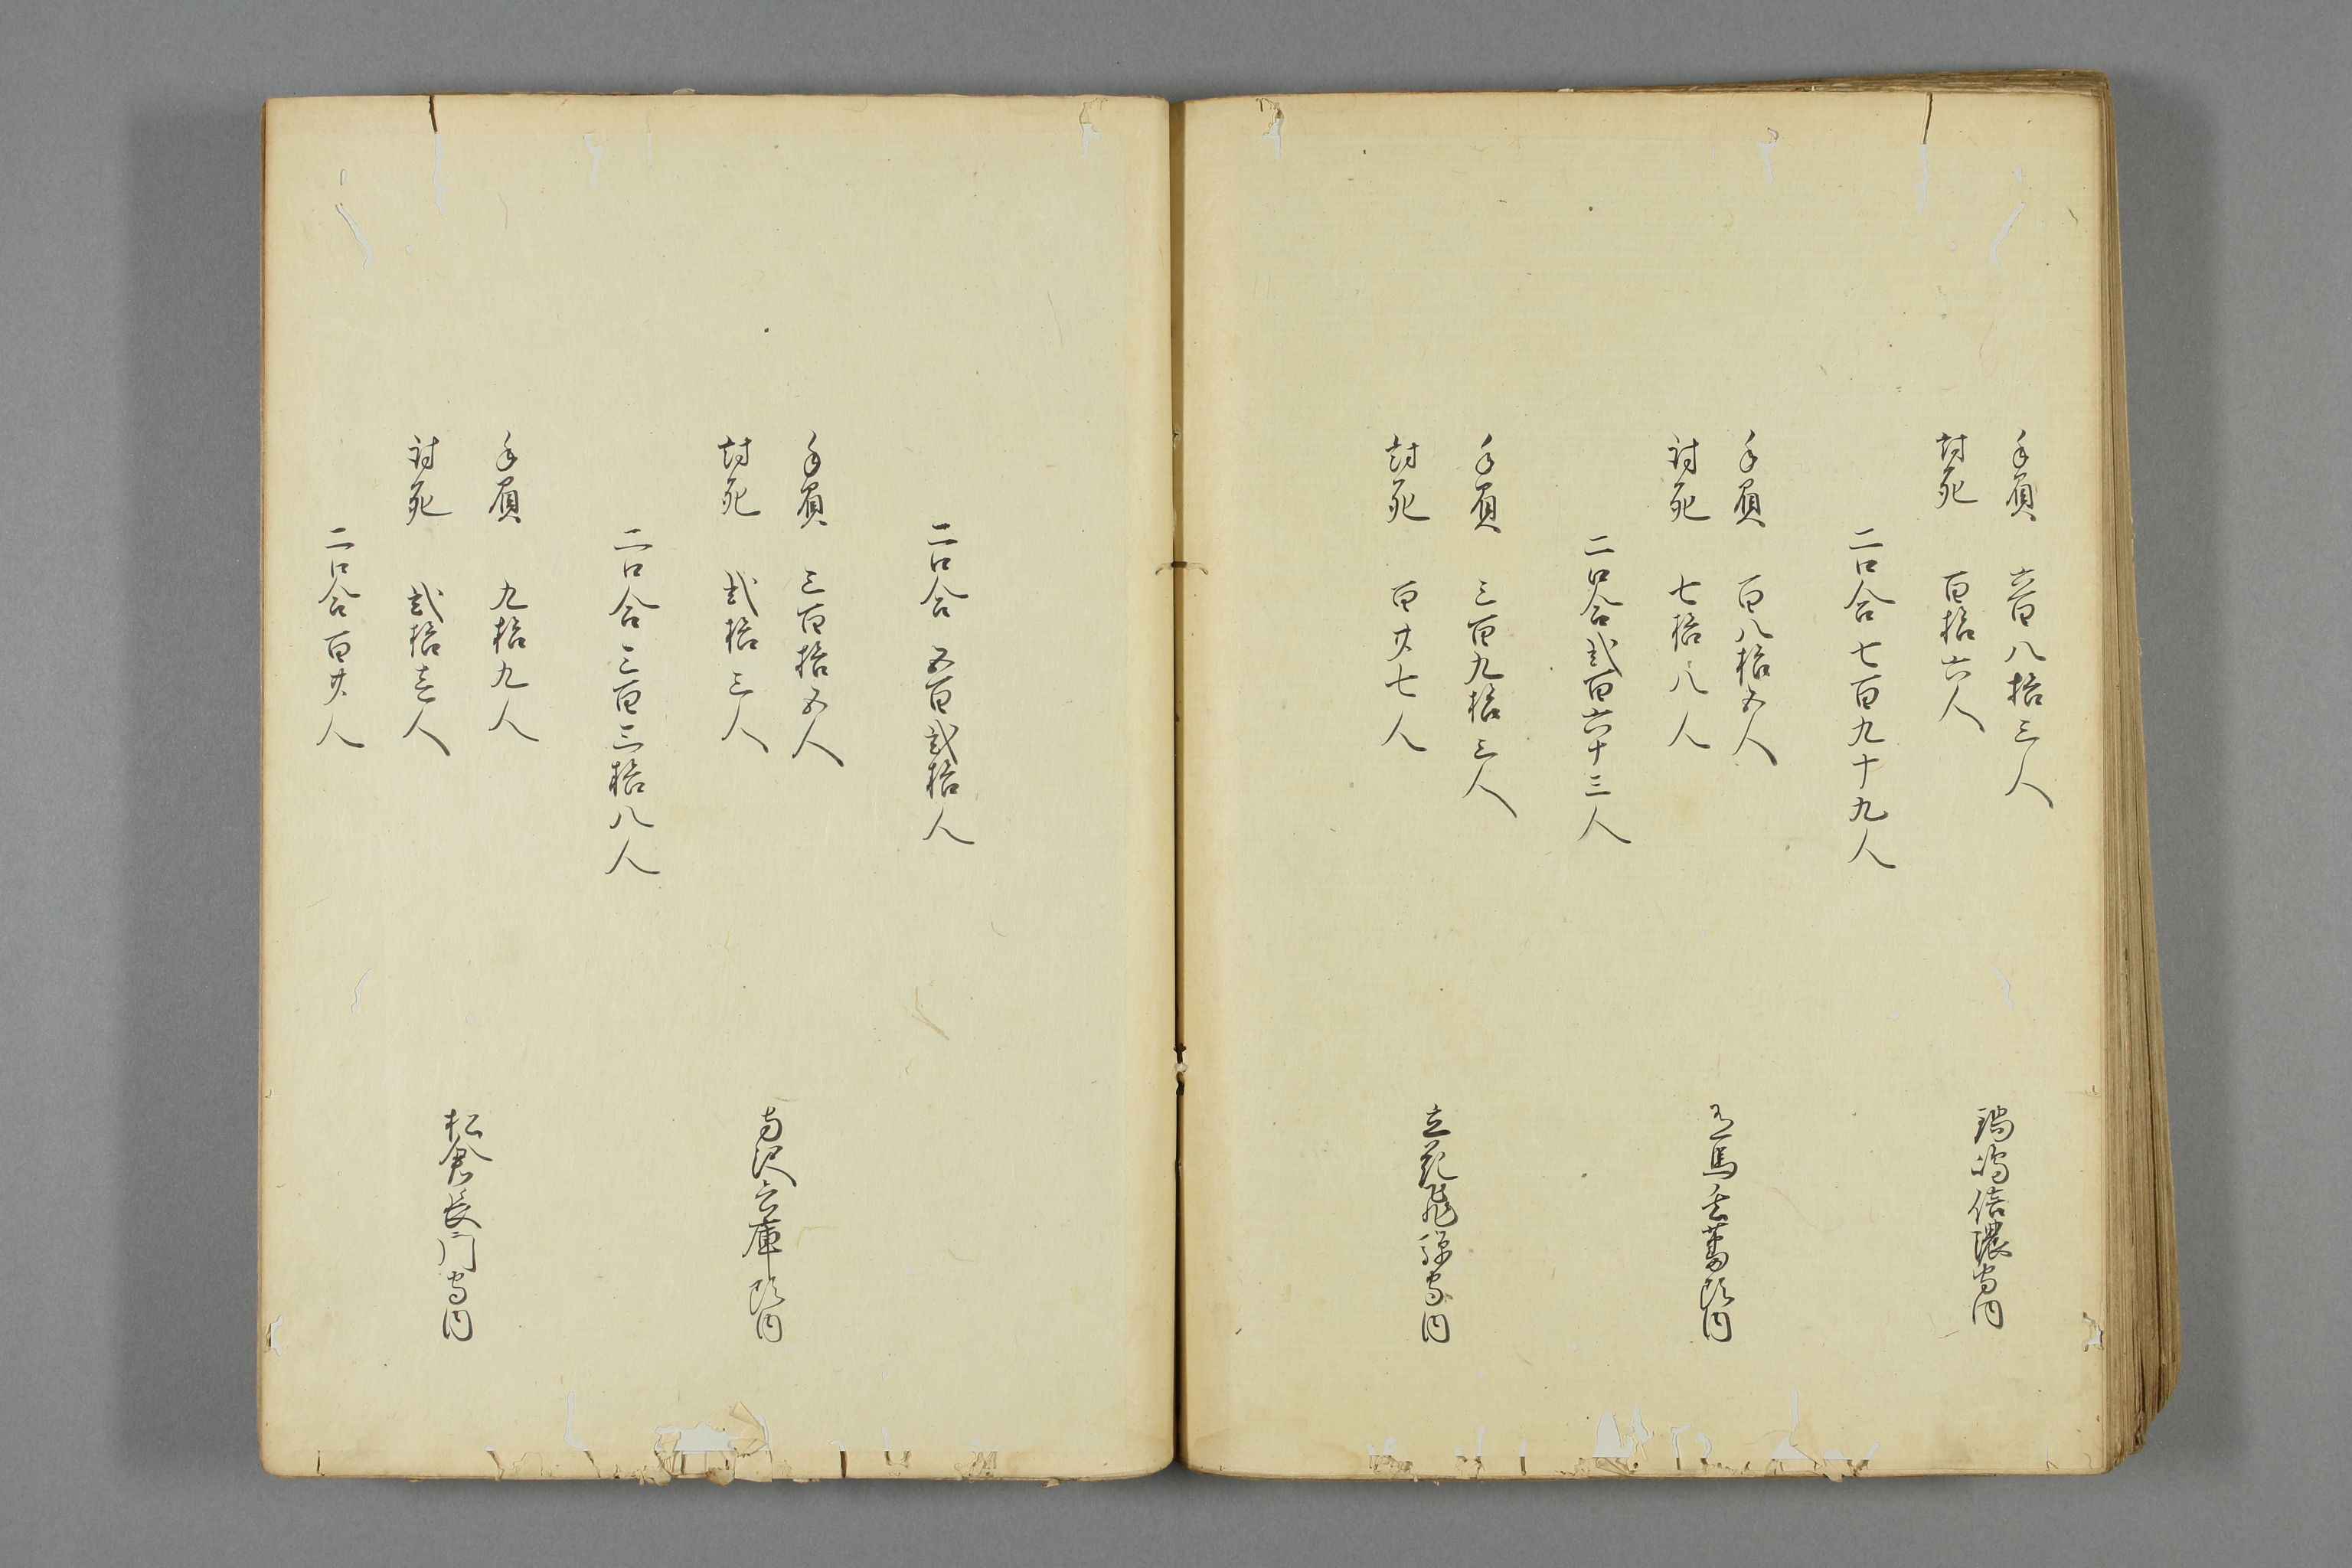 手負　六百八拾三人
討死　百拾六人
鍋嶋信濃守内
二口合七百九十九人
手負　百八拾五人
討死　七拾八人
有馬玄蕃頭内
二口合弐百六十三人
手負　三百九拾三人
討死　百廿七人
立花飛騨守内
二口合　五百弐拾人
手負　三百拾五人
討死　弐拾三人
寺沢兵庫頭内
二口合三百三拾八人
手負　九拾九人
討死　弐拾壱人
松倉長門守内
二口合百廿人